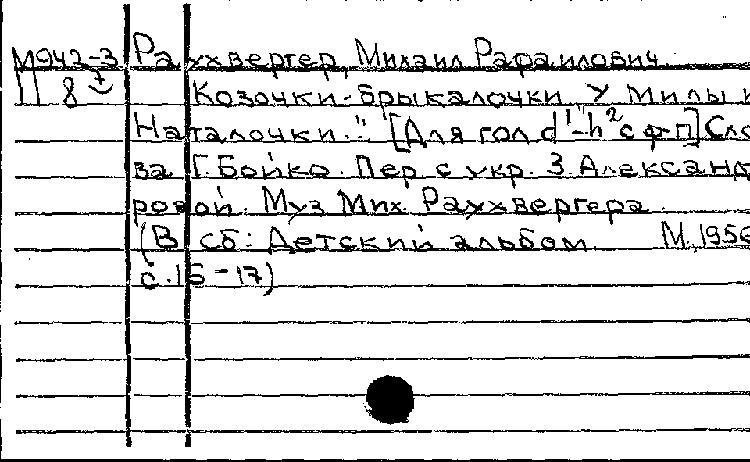 М942-3 Рауххвергер, Михаил Рафаилович.
11 8 Козочки-брыкалочки. "У Милы и
Наталочки." [Для гол. d¹-h² с ф-п] Сло
ва Г. Бойко. Пер. с укр. З. Александ
ровой. Муз. Мих. Рауххвергера.
(В сб: Детский альбом. М, 1956
с. 15-17)